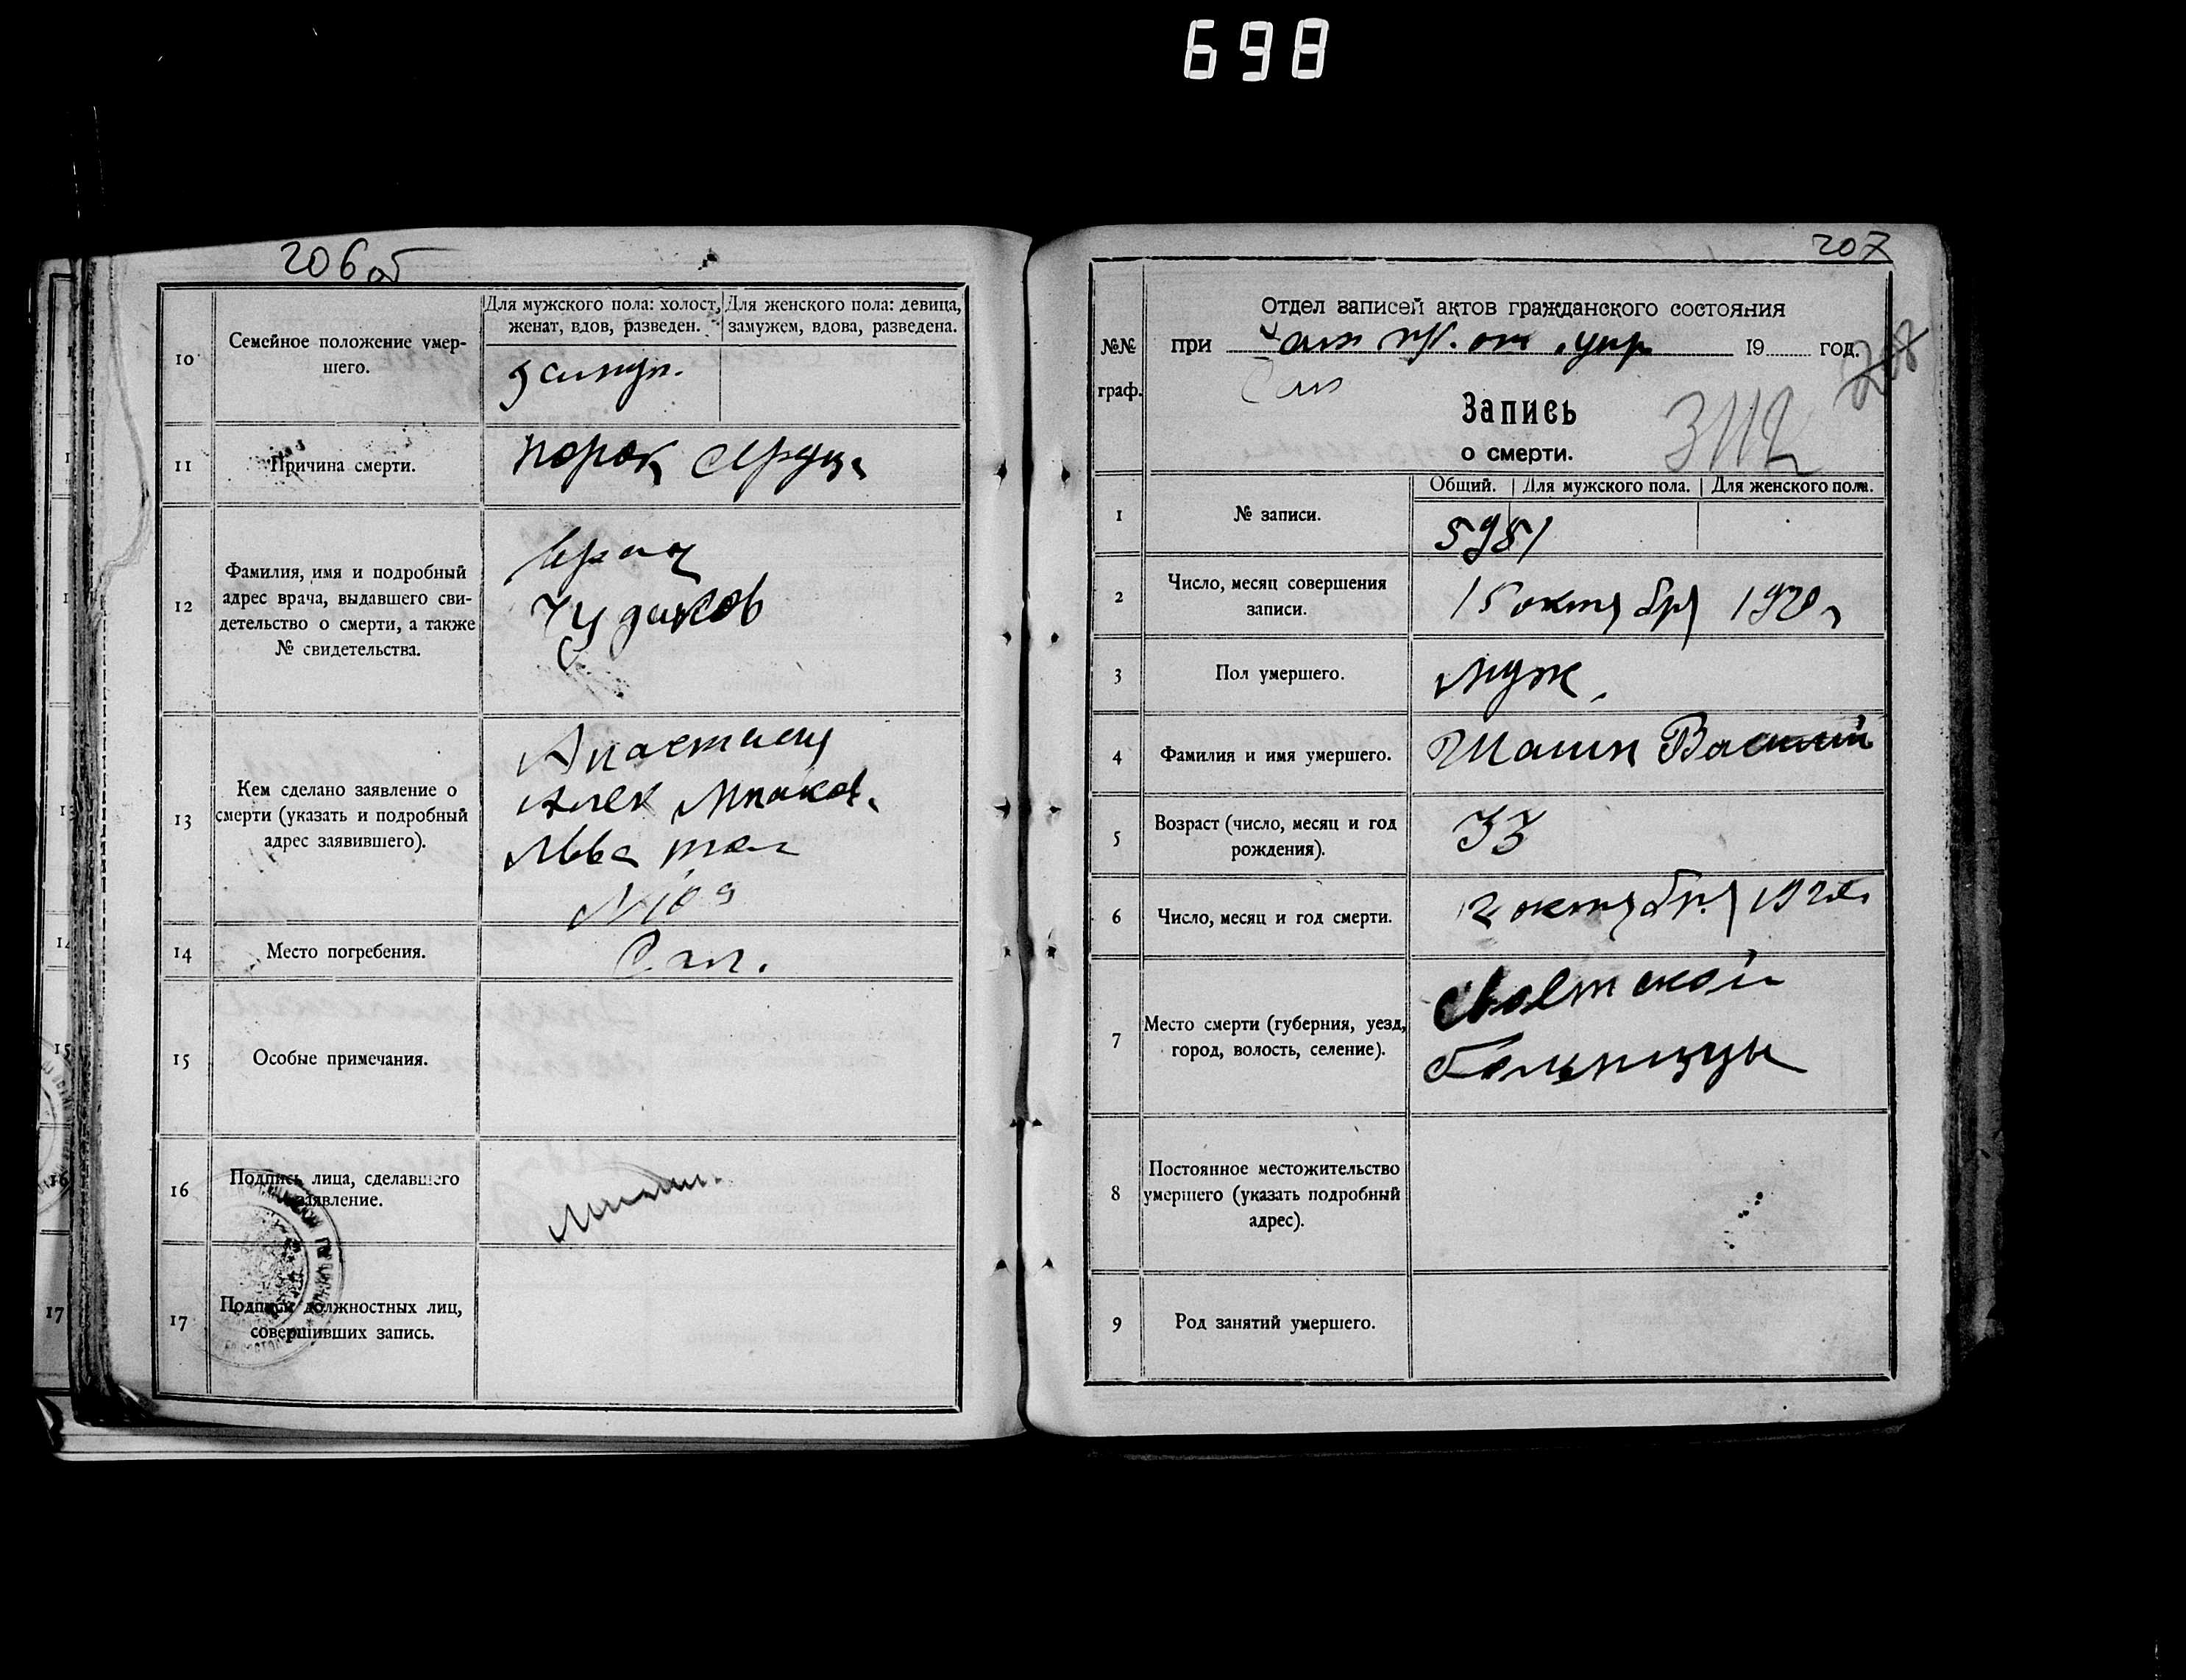 698
206об
10
Семейное положение умер-
шего.
Для мужского пола: холост,
женат, вдов, разведен.
Для женского пола: девица,
замужем, вдова, разведена.
11
Причина смерти.
порок сердца
12
Фамилия, имя и подробный
адрес врача, выдавшего сви-
детельство о смерти, а также
№ свидетельства.
врач
13
Кем сделано заявление о
смерти (указать и подробный
адрес заявившего).
Анастасия
Алек
14
Место погребения.
15
Особые примечания.
16
Подпись лица, сделавшего
заявление.
17
Подписи должностных лиц,
совершивших запись.
207
№№
граф.
Отдел записей актов гражданского состояния
при
19 год.
Запись
о смерти.
1
№ записи.
Общий.
Для мужского пола.
Для женского пола.
5951
2
Число, месяц совершения
записи.
15 октября 1920 г
3
Пол умершего.
муж.
4
Фамилия и имя умершего.
Шашин Василий
5
Возраст (число, месяц и год
рождения).
33
6
Число, месяц и год смерти.
2 октября 1920 г
7
Место смерти (губерния, уезд,
город, волость, селение).
Советской
больницы
8
Постоянное местожительство
умершего (указать подробный
адрес).
9
Род занятий умершего.